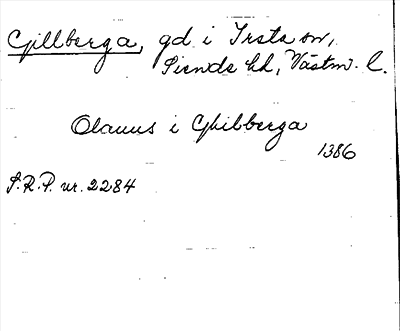 Gillberga, gd. i Irsta sn,
Siende hd, Västm. l.
Olauus i Ghilberga
1386
S.R.P. nr. 2284